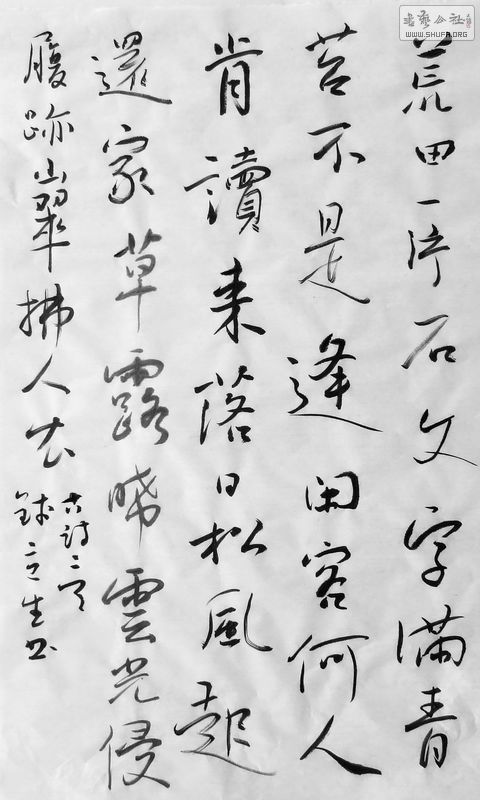 書藝公社
WWW.SHUFA.ORG
荒田一片石文字满青
苔不是逢闲客何人
肯讀来落日松風起
還家草露晞雲光侵
履跡山翠拂人衣
古詩二首
生书